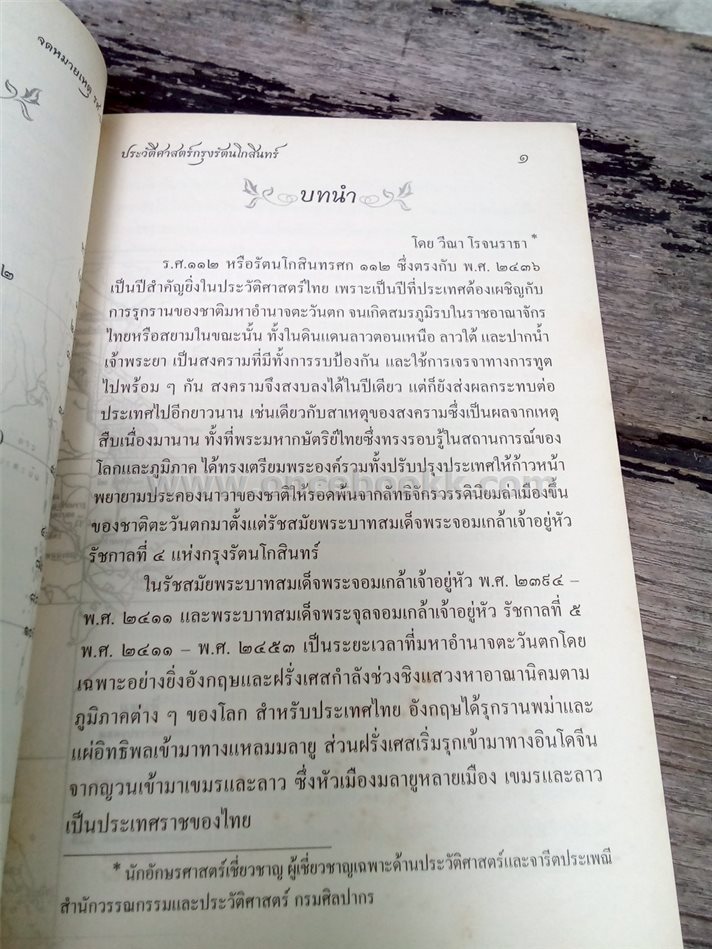 จดหมายเหตุ
ประวัติศาสตร์กรุงรัตนโกสินทร์
๑
บทนำ
โดย วีณา โรจนราธา *
ร.ศ.๑๑๒ หรือรัตนโกสินทรศก ๑๑๒ ซึ่งตรงกับ พ.ศ. ๒๔๓๖
เป็นปีสำคัญยิ่งในประวัติศาสตร์ไทย เพราะเป็นปีที่ประเทศต้องเผชิญกับ
การรุกรานของชาติมหาอำนาจตะวันตก จนเกิดสมรภูมิรบในราชอาณาจักร
ไทยหรือสยามในขณะนั้น ทั้งในดินแดนลาวตอนเหนือ ลาวใต้ และปากน้ำ
เจ้าพระยา เป็นสงครามที่มีทั้งการรบป้องกัน และใช้การเจรจาทางการทูต
ไปพร้อม ๆ กัน สงครามจึงสงบลงได้ในปีเดียว แต่ก็ยังส่งผลกระทบต่อ
ประเทศไปอีกยาวนาน เช่นเดียวกับสาเหตุของสงครามซึ่งเป็นผลจากเหตุ
สืบเนื่องมานาน ทั้งที่พระมหากษัตริย์ไทยซึ่งทรงรอบรู้ในสถานการณ์ของ
โลกและภูมิภาค ได้ทรงเตรียมพระองค์รวมทั้งปรับปรุงประเทศให้ก้าวหน้า
พยายามประคองนาวาของชาติให้รอดพ้นจากลัทธิจักรวรรดินิยมล่าเมืองขึ้น
ของชาติตะวันตกมาตั้งแต่รัชสมัยพระบาทสมเด็จพระจอมเกล้าเจ้าอยู่หัว
รัชกาลที่ ๔ แห่งกรุงรัตนโกสินทร์
ในรัชสมัยพระบาทสมเด็จพระจอมเกล้าเจ้าอยู่หัว พ.ศ. ๒๓๙๔ –
พ.ศ. ๒๔๑๑ และพระบาทสมเด็จพระจุลจอมเกล้าเจ้าอยู่หัว รัชกาลที่ ๕
พ.ศ. ๒๔๑๑ – พ.ศ. ๒๔๕๓ เป็นระยะเวลาที่มหาอำนาจตะวันตกโดย
เฉพาะอย่างยิ่งอังกฤษและฝรั่งเศสกำลังช่วงชิงแสวงหาอาณานิคมตาม
ภูมิภาคต่าง ๆ ของโลก สำหรับประเทศไทย อังกฤษได้รุกรานพม่าและ
แผ่อิทธิพลเข้ามาทางแหลมมลายู ส่วนฝรั่งเศสเริ่มรุกเข้ามาทางอินโดจีน
จากญวนเข้ามาเขมรและลาว ซึ่งหัวเมืองมลายูหลายเมือง เขมรและลาว
เป็นประเทศราชของไทย
* นักอักษรศาสตร์เชี่ยวชาญ ผู้เชี่ยวชาญเฉพาะด้านประวัติศาสตร์และจารีตประเพณี
สำนักวรรณกรรมและประวัติศาสตร์ กรมศิลปากร